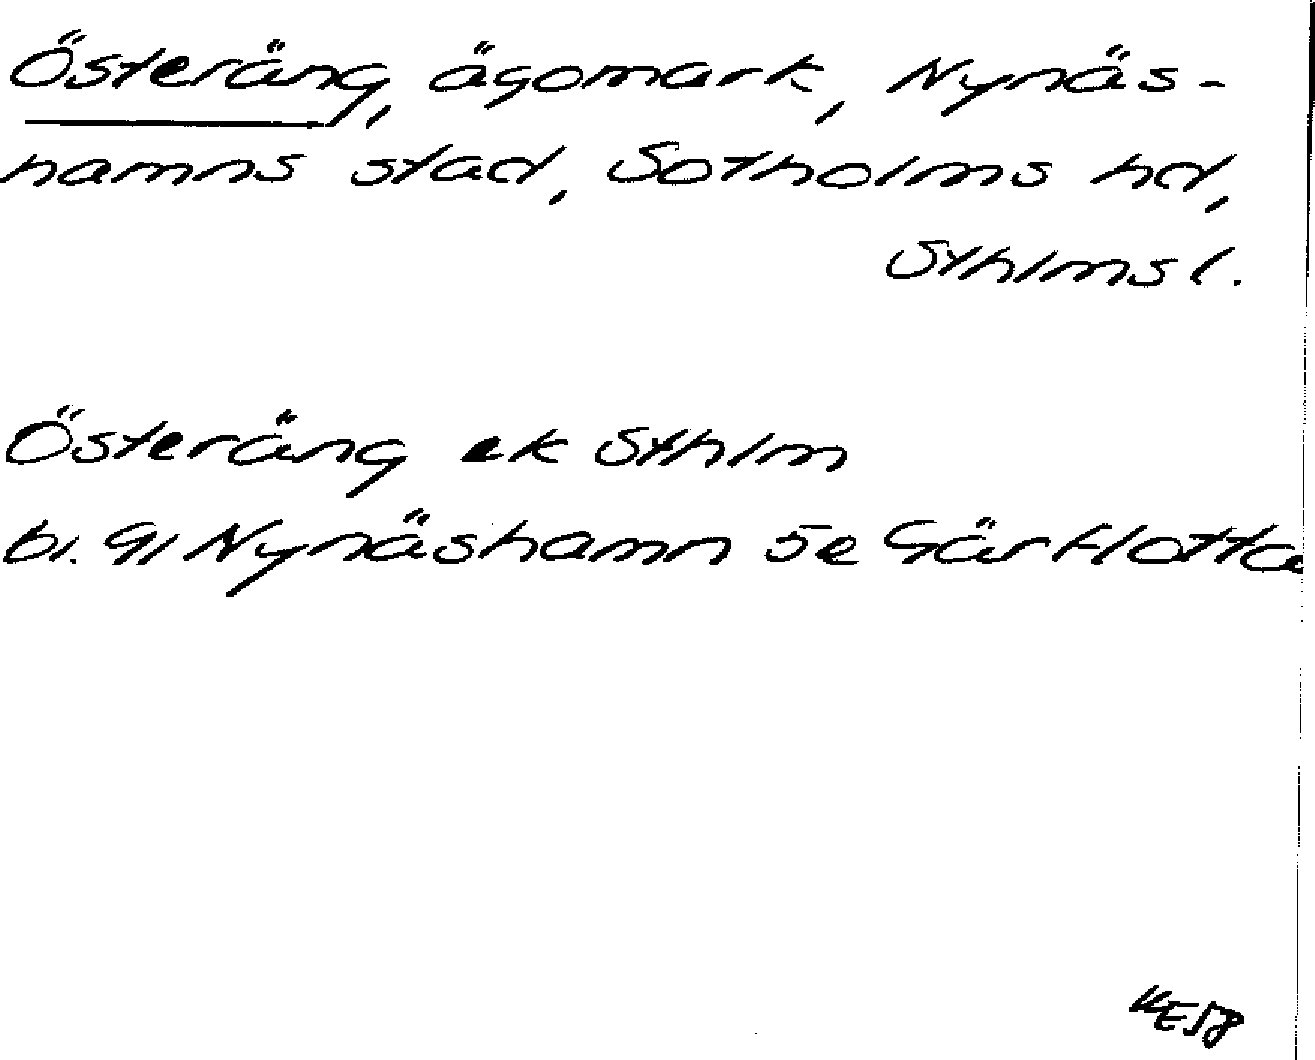 Österäng, ägomark, Nynäs-
hamns stad, Sotholms hd,
Sthlms l.
Österäng ek Sthlm
bl. 91 Nynäshamn 5e Gärflotta